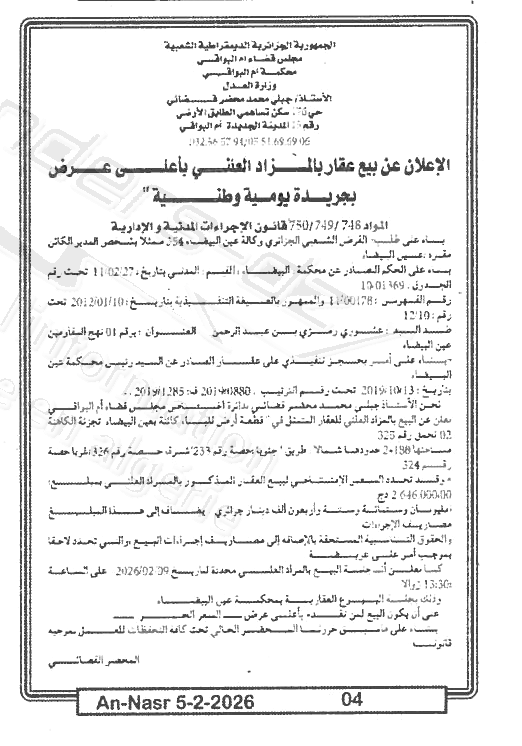 الجمهورية الجزائرية الديمقراطية الشعبية
مجلس قضاء ام البواقي
محكمة ام البواقي
وزارة العدل
الأستاذ/ جبلي محمد محضر قضائي
حي سكن تساهمي الطابق الأرضي
رقم المدينة الجديدة أم البواقي
الإعلان عن بيع عقار بالمزاد العلني بأعلى عرض
بجريدة يومية وطنية"
المواد 748/ 749/ 750 قانون الإجراءات المدنية و الإدارية
بناء على طلب: القرض الشعبي الجزائري وكالة عين البيضاء 354 ممثلا بشخص المدير الكائن
مقره: عين البيضاء
بناء على الحكم الصادر عن محكمة: البيضاء، القسم: المدني بتاريخ: 11/02/27 تحت رقم
الجدول: 10/01369
رقم الفهرس: 11/00178 والممهور بالصيغة التنفيذية بتاريخ: 2012/01/10 تحت
رقم: 12/10
ضد السيد: عشوري رمزي بن عبد الرحمن العنوان: برقم 01 نهج
عين البيضاء
-بناء على أمر بحجز تنفيذي على عقار الصادر عن السيد رئيس محكمة عين
البيضاء
بتاريخ: 2019/10/13 تحت رقم الترتيب: 2019/0880 2019/1285
نحن الأستاذ جبلي محمد محضر قضائي بدائرة اختصاص مجلس قضاء أم البواقي
نعلن عن البيع بالمزاد العلني للعقار المتمثل في" قطعة أرض للبناء كائنة بعين البيضاء تجزئة الكاهنة
02 تحمل رقم 325
مساحتها 188م2 حدودها شمالا: طريق جنوبا حصة رقم 233 شرقا حصة رقم 326 غربا حصة
رقم 324
وقد تحدد السعر الإفتتاحي لبيع العقار المذكور بالمزاد العلني بمبلغ:
2.646.000.00 دج
(مليونان وستمائة وستة وأربعون ألف دينار جزائري يضاف إلى هذا المبلغ
مصاريف الإجراءات
والحقوق التناسبية المستحقة بالإضافة إلى مصاريف إجراءات البيع والتي تحدد لاحقا
بموجب أمر على عريضة
كما نعلن أن جلسة البيع بالمزاد العلني محددة لتاريخ 2026/02/09 على الساعة
13:30 زوالا
وذلك بجلسة البيوع العقارية بمحكمة عين البيضاء
على أن يكون البيع لمن تقدم بأعلى عرض السعر
بناء على ما سبق حررنا المحضر الحالي تحت كافة التحفظات للعمل بموجبه
قانونا
المحضر القضائي
An-Nasr 5-2-2026 04